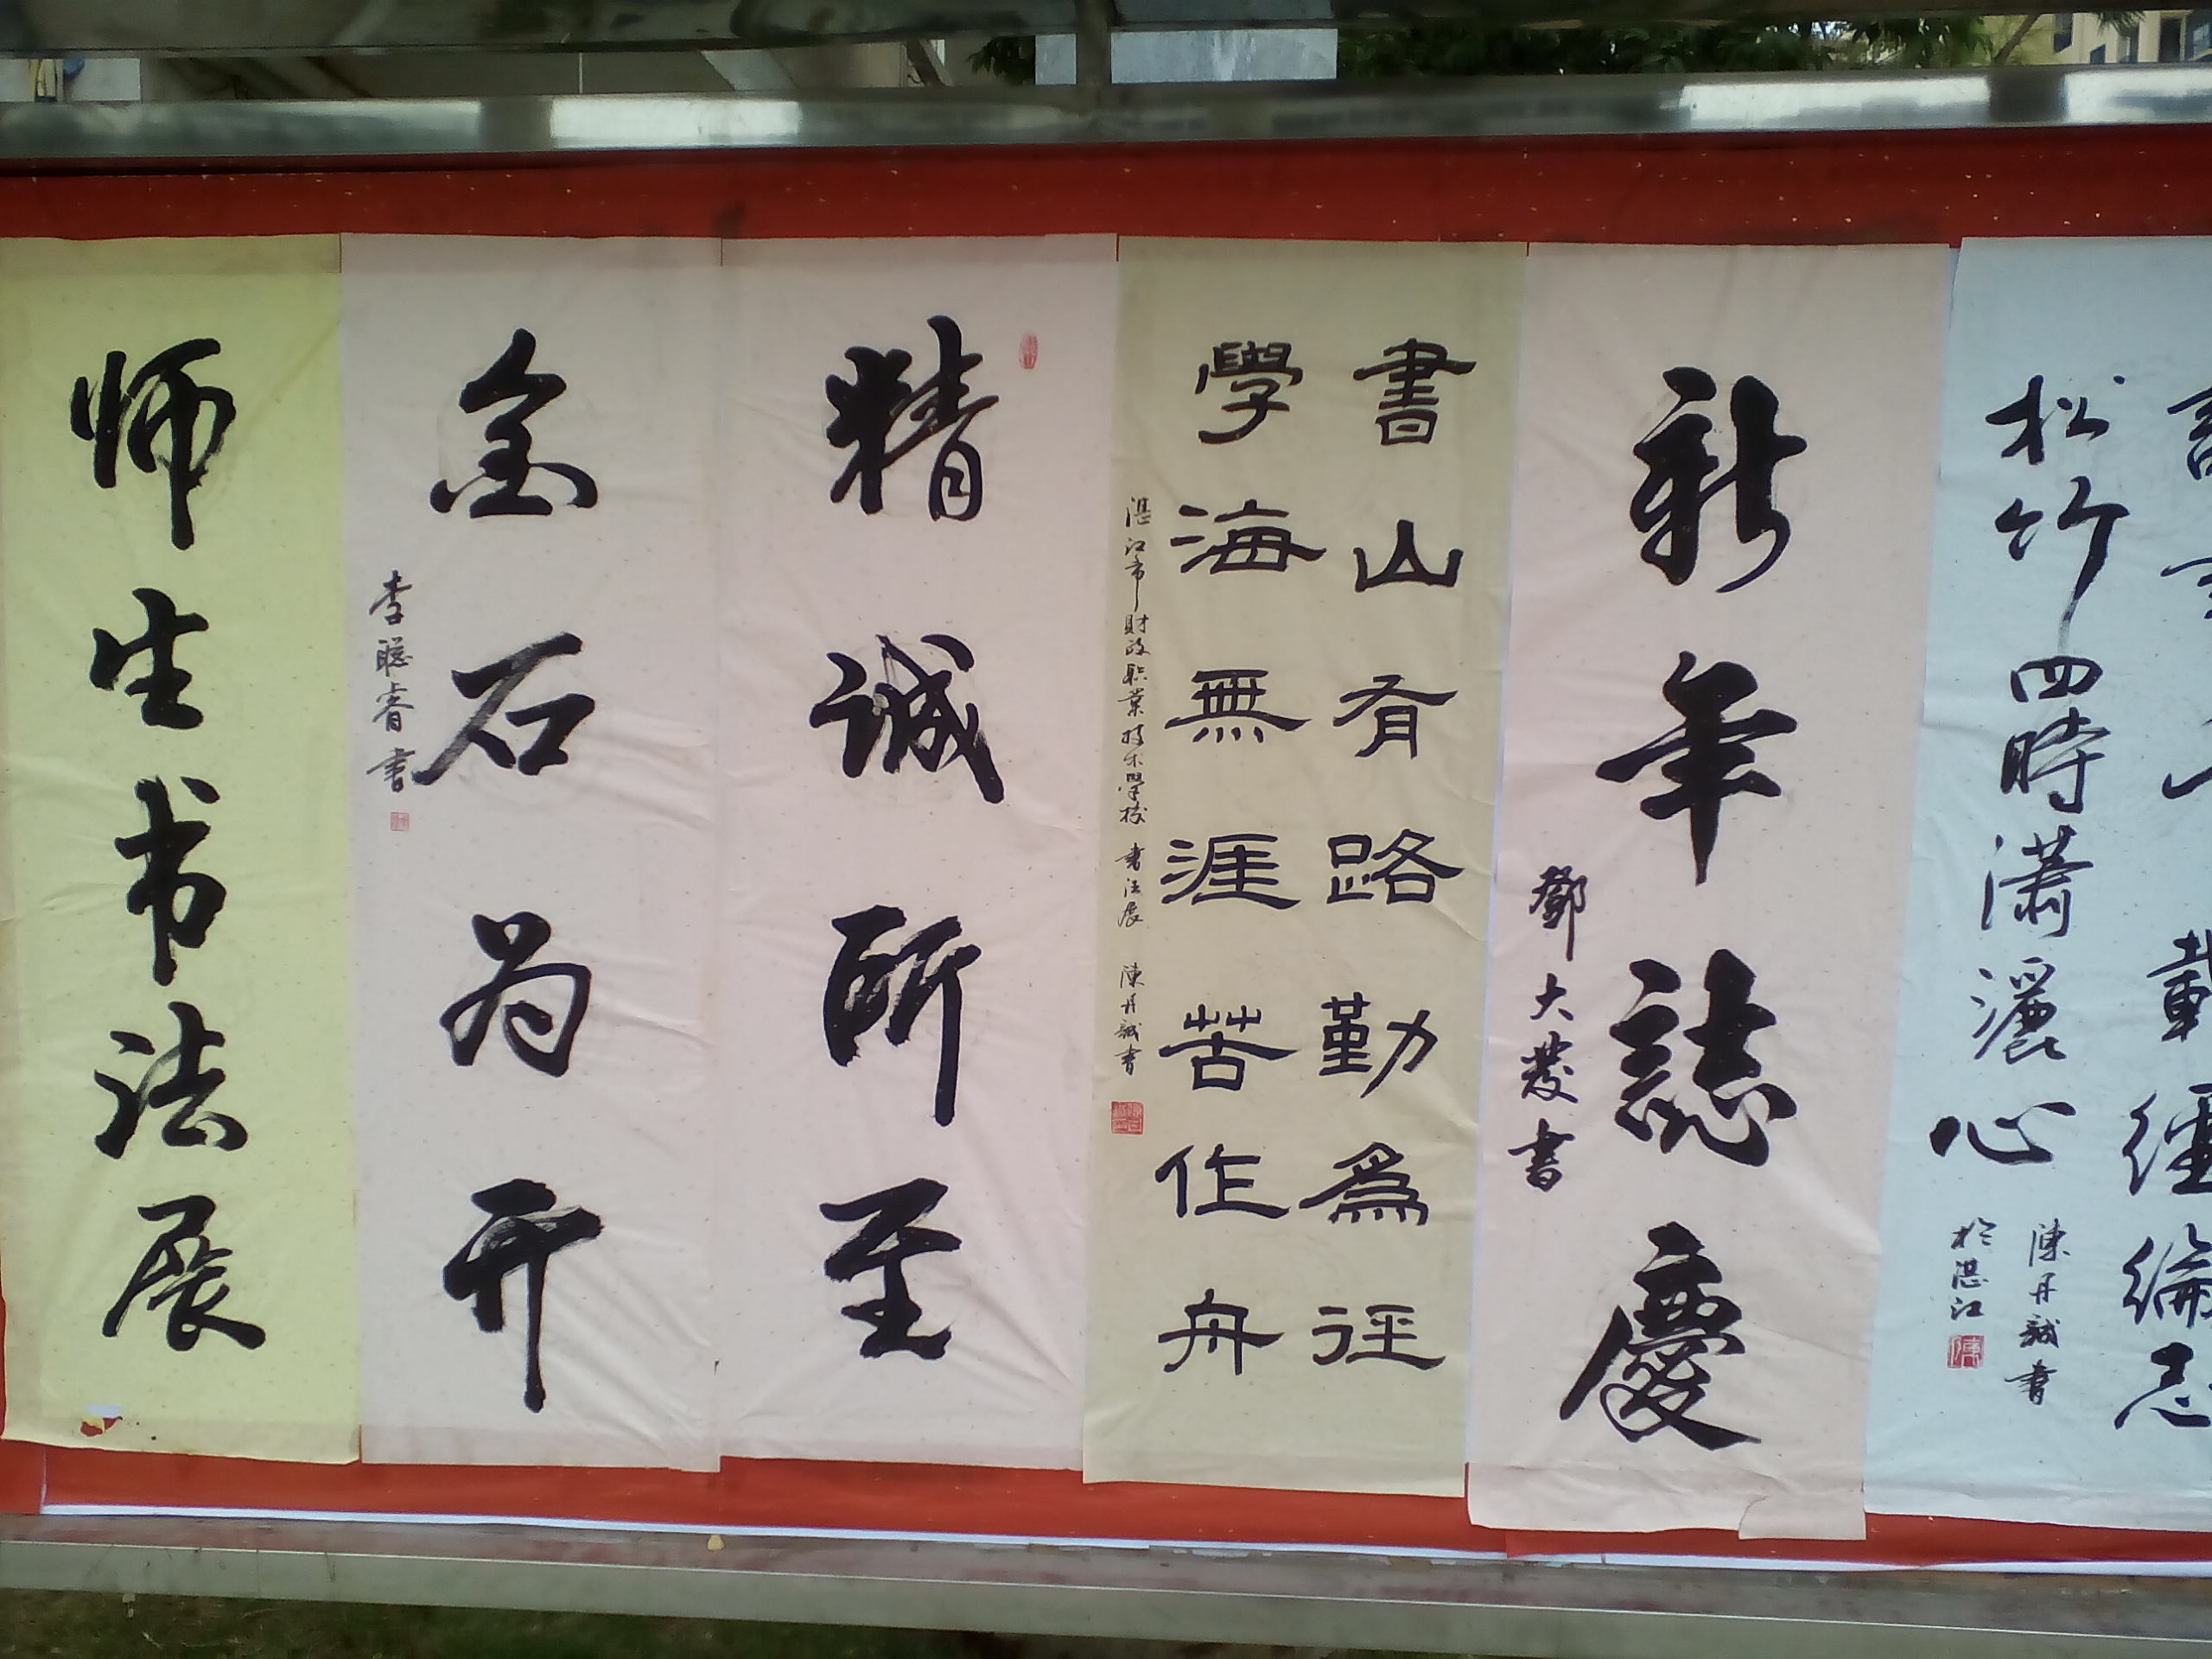 师生书法展
精诚所至
金石为开
李聪睿书
書山有路勤為徑
學海無涯苦作舟
湛江市財政职業技术學校 書法展 陳丹誠書
新年誌慶
鄧大發書
載經綸志
松竹四時瀟灑心
陳丹誠書
於湛江